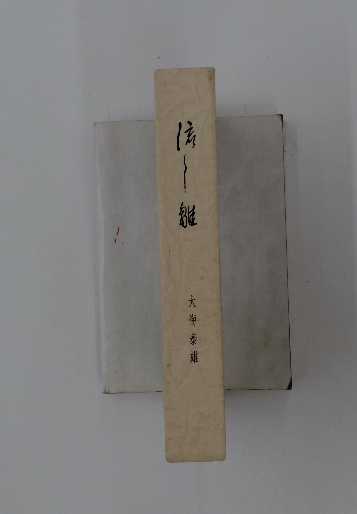 流し雛
大海泰雄